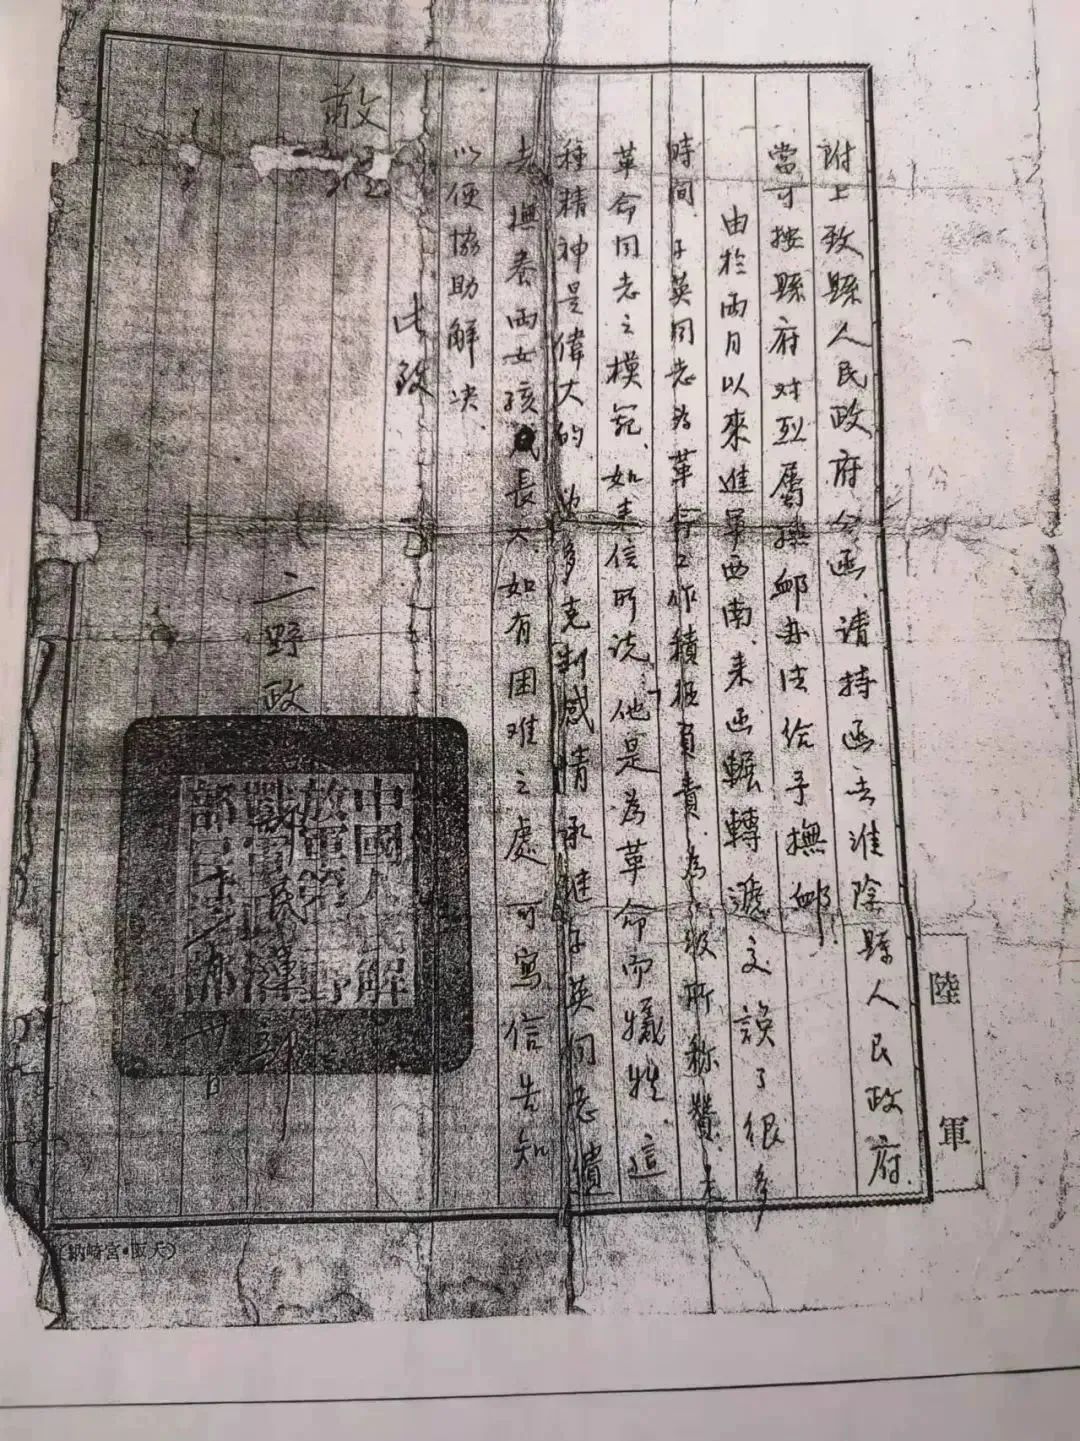 附上致縣人民政府公函、请持函去淮陰縣人民政府.
當可按縣府对烈屬撫卹办法给予撫卹.
由於兩月以來進軍西南、来函輾轉遞交誤了很多
時间.子英同志為革命工作積极負責.為我所称贊.
革命同志之模范、如来信所说「他是為革命而犧牲、這
種精神是偉大的 望多克制感情承继子英同志遺
志撫养兩女孩成長大.如有困难之處可寫信告知
以便協助解决.
此致
敬礼
二野政
廿日
中國人民解
放軍第二野
戰軍
部
陸軍